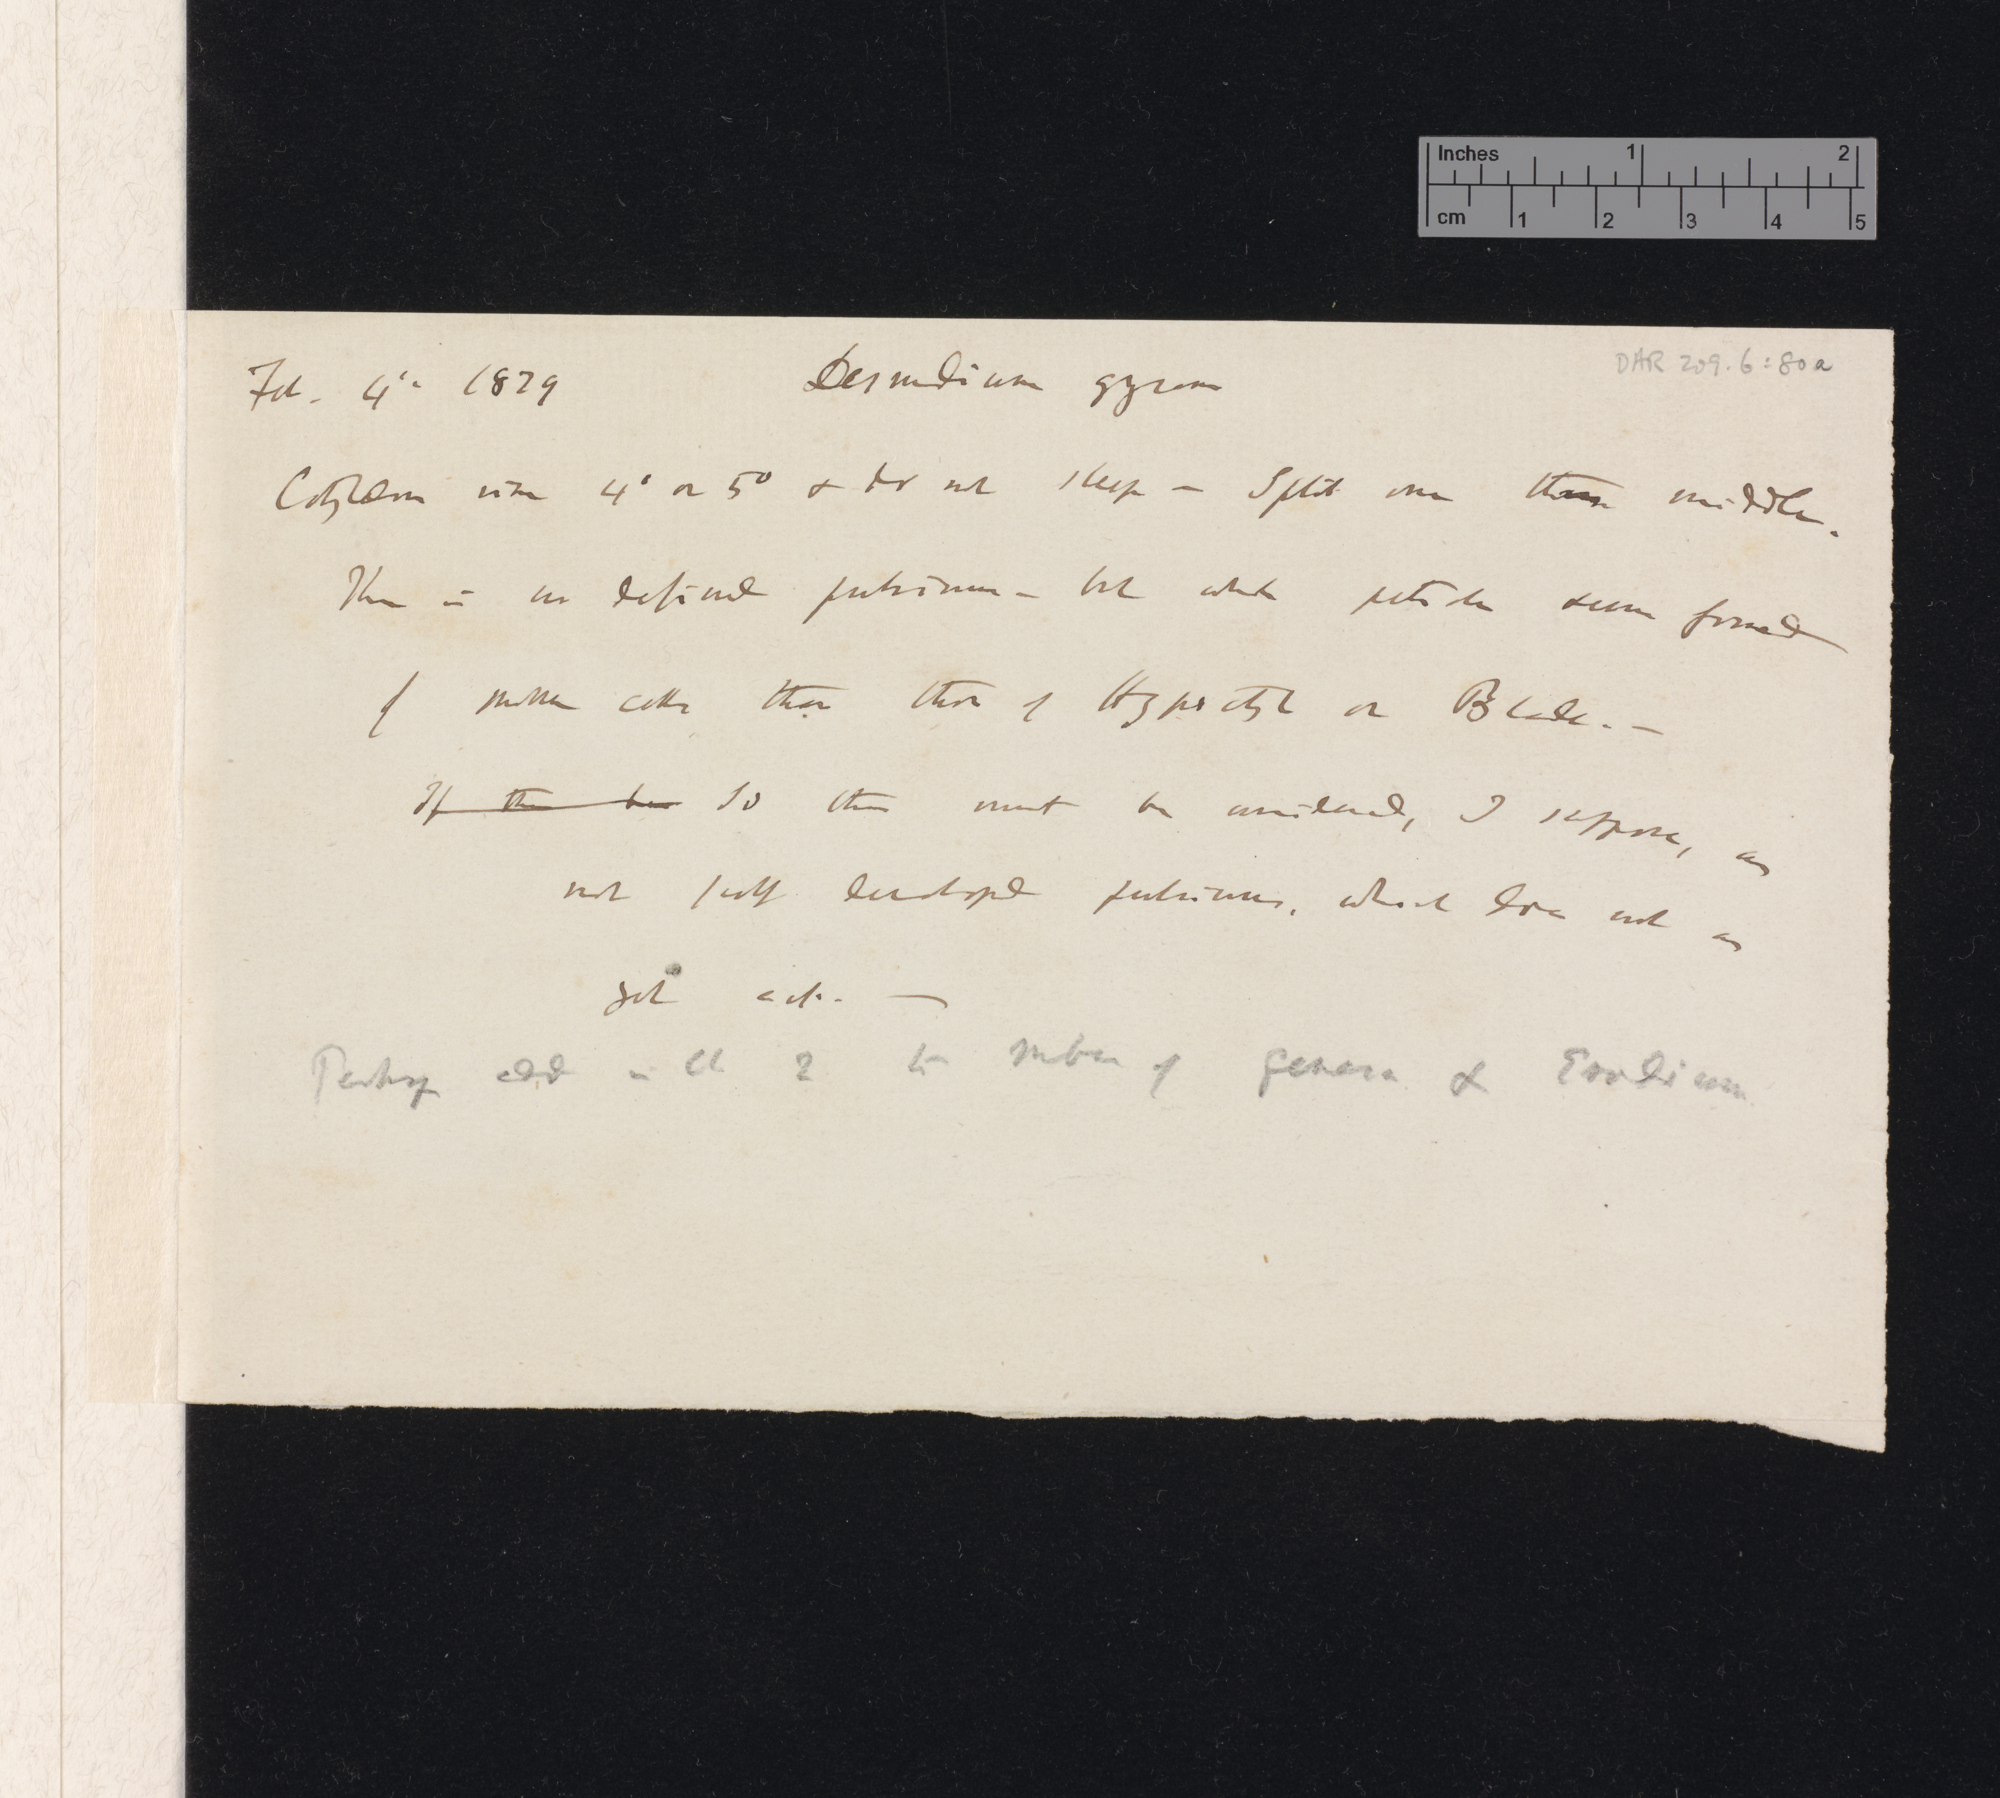 Inches 1 2
cm 1 2 3 4 5
DAR 209.6:80a
Feb. 4th 1879 Desmodium gyrans
Cotyledons rise 4° or 5° & do not sleep — Split one thro middle.
There is no defined pulvinus — but whole petiole seems formed
of smaller cells than those of Hypocotyl or Blade. —
If there be So this must be considered, I suppose, as
not fully developed pulvinus, which does not as
yet act. —
Perhaps add in Ch 2 to number of genera & Erodium